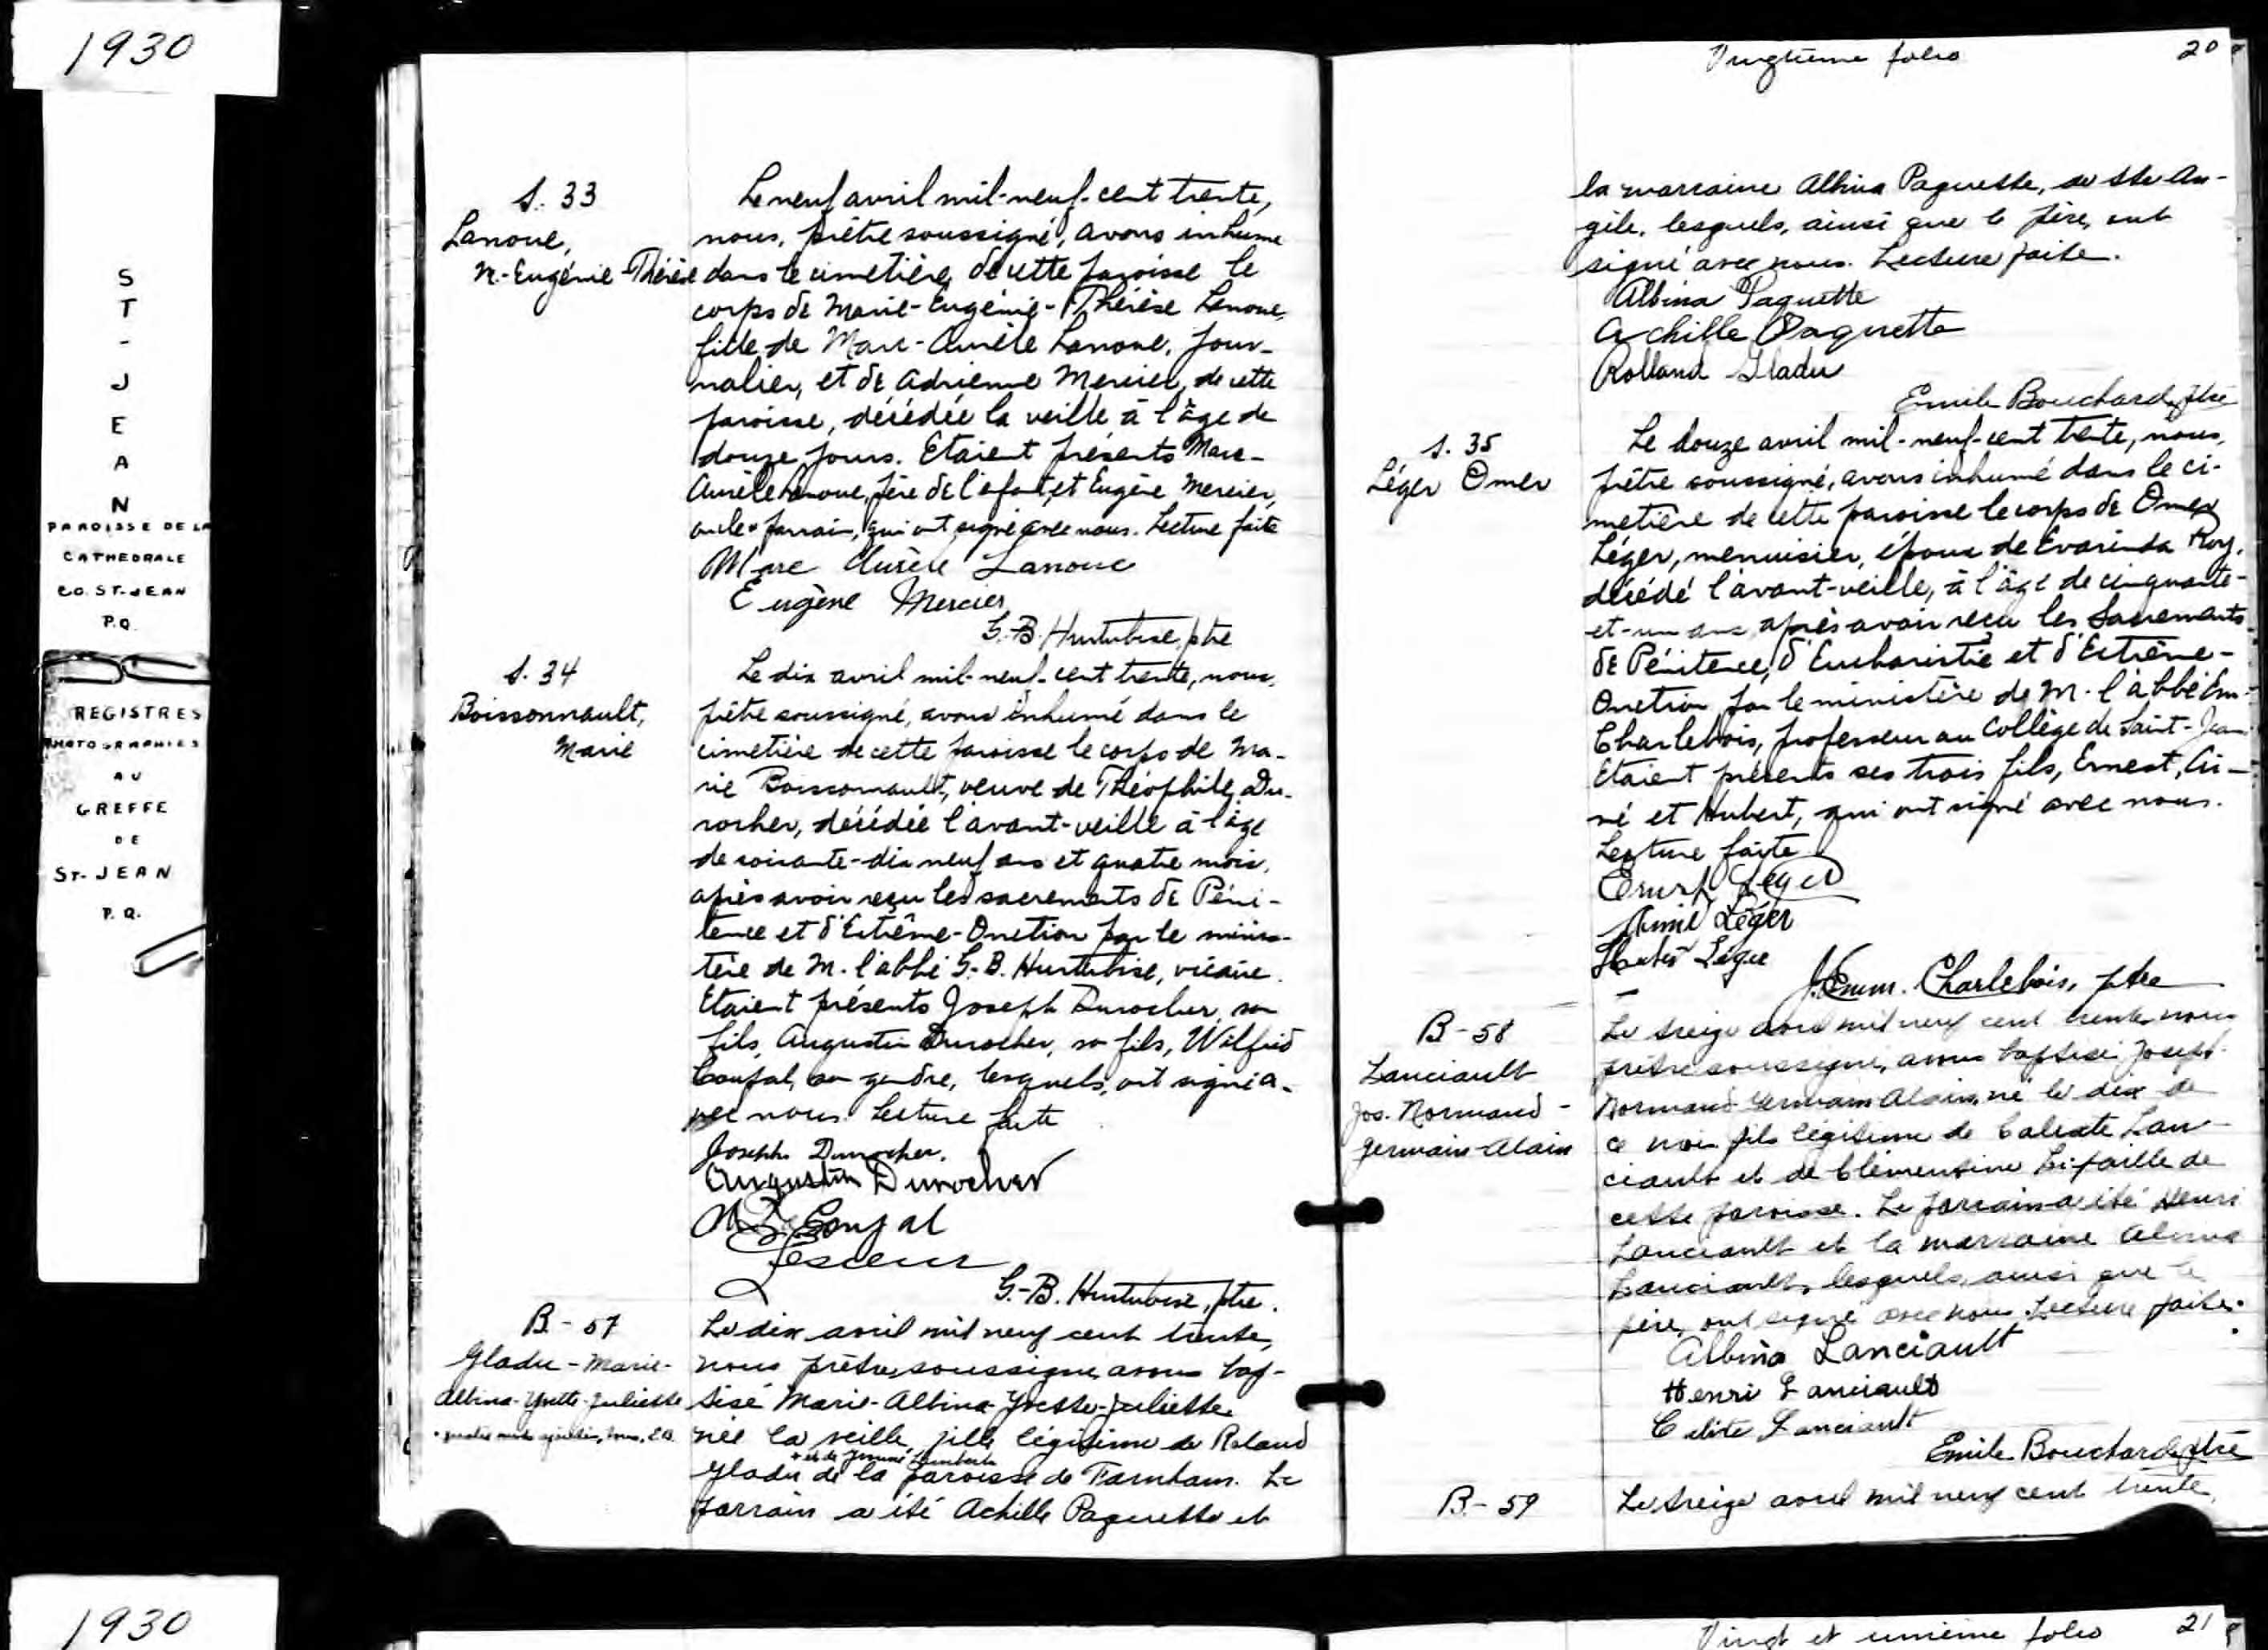 1930
S
T
-
J
E
A
N
PAROISSE DE LA
CATHEDRALE
CO. ST-JEAN
P.Q.
REGISTRES
PHOTOGRAPHIES
AU
GREFFE
DE
ST-JEAN
P.Q.
1930
S. 33
Lanoue,
M.-Eugénie-Thérèse
Le neuf avril mil-neuf-cent trente,
nous, prêtre soussigné, avons inhumé
dans le cimetière de cette paroisse le
corps de Marie-Eugénie-Thérèse Lanoue,
fille de Marc-Aurèle Lanoue, jour-
nalier, et de Adrienne Mercier, de cette
paroisse, décédée la veille à l'âge de
douze jours. Etaient présents Marc-
Aurèle Lanoue, père de l'enfant, et Eugène Mercier,
oncle & parrain, qui ont signé avec nous. Lecture faite
Marc Aurèle Lanoue
Eugène Mercier
G.-B. Hurtubise, ptre
S. 34
Boissonnault,
Marie
Le dix avril mil-neuf-cent trente, nous,
prêtre soussigné, avons inhumé dans le
cimetière de cette paroisse le corps de Ma-
rie Boissonnault, veuve de Théophile Du-
rocher, décédée l'avant-veille à l'âge
de soixante-dix neuf ans et quatre mois,
après avoir reçu les sacrements de Péni-
tence et d'Extrême-Onction par le minis-
tère de M. l'abbé G.-B. Hurtubise, vicaire.
Etaient présents Joseph Durocher, son
fils, Augustin Durocher, son fils, Wilfrid
Coupal, son gendre, lesquels ont signé a-
vec nous. Lecture faite
Joseph Durocher.
Augustin Durocher
Coupal
G.-B. Hurtubise, ptre.
B - 57
Gladu - Marie-
Albina-Yvette-Juliette
Le dix avril mil neuf cent trente,
nous prêtre, soussigné avons bap-
tisé Marie-Albina-Yvette-Juliette
née la veille, fille légitime de Roland
+ et de Lambert
Gladu de la paroisse de Farnham. Le
parrain a été Achille Paquette et
Vingtième folio 20
la marraine Albina Paquette, de Ste An-
gèle, lesquels, ainsi que le père, ont
signé avec nous. Lecture faite.
Albina Paquette
Achille Paquette
Rolland Gladu
Emile Bouchard, ptre
S. 35
Léger Omer
Le douze avril mil-neuf-cent trente, nous,
prêtre soussigné, avons inhumé dans le ci-
metière de cette paroisse le corps de Omer
Léger, menuisier, époux de Evarinda Roy,
décédé l'avant-veille, à l'âge de cinquante-
et-un ans après avoir reçu les Sacrements
de Pénitence, d'Eucharistie et d'Extrême-
Onction par le ministère de M. l'abbé Em.
Charlebois, professeur au Collège de Saint-Jean
Etaient présents ses trois fils, Ernest, Ai-
mé et Hubert, qui ont signé avec nous.
Lecture faite.
Ernest Léger
Aimé Léger
Léger
J. Emm. Charlebois, ptre
B - 58
Lanciault
Jos. Normand -
Germain-Alain
Le treize avril mil neuf cent trente nous
prêtre soussigné, avons baptisé Joseph-
Normand Germain Alain, né le dix de
ce mois fils légitime de Calixte Lan-
ciault et de Clémentine de
cette paroisse. Le parrain a été Henri
Lanciault et la marraine Albina
Lanciault, lesquels, ainsi que le
père, ont signé avec nous. Lecture faite.
Albina Lanciault
Henri Lanciault
Lanciault
Emile Bouchard, ptre
B - 59
Le treize avril mil neuf cent trente,
Vingt et unième folio 21